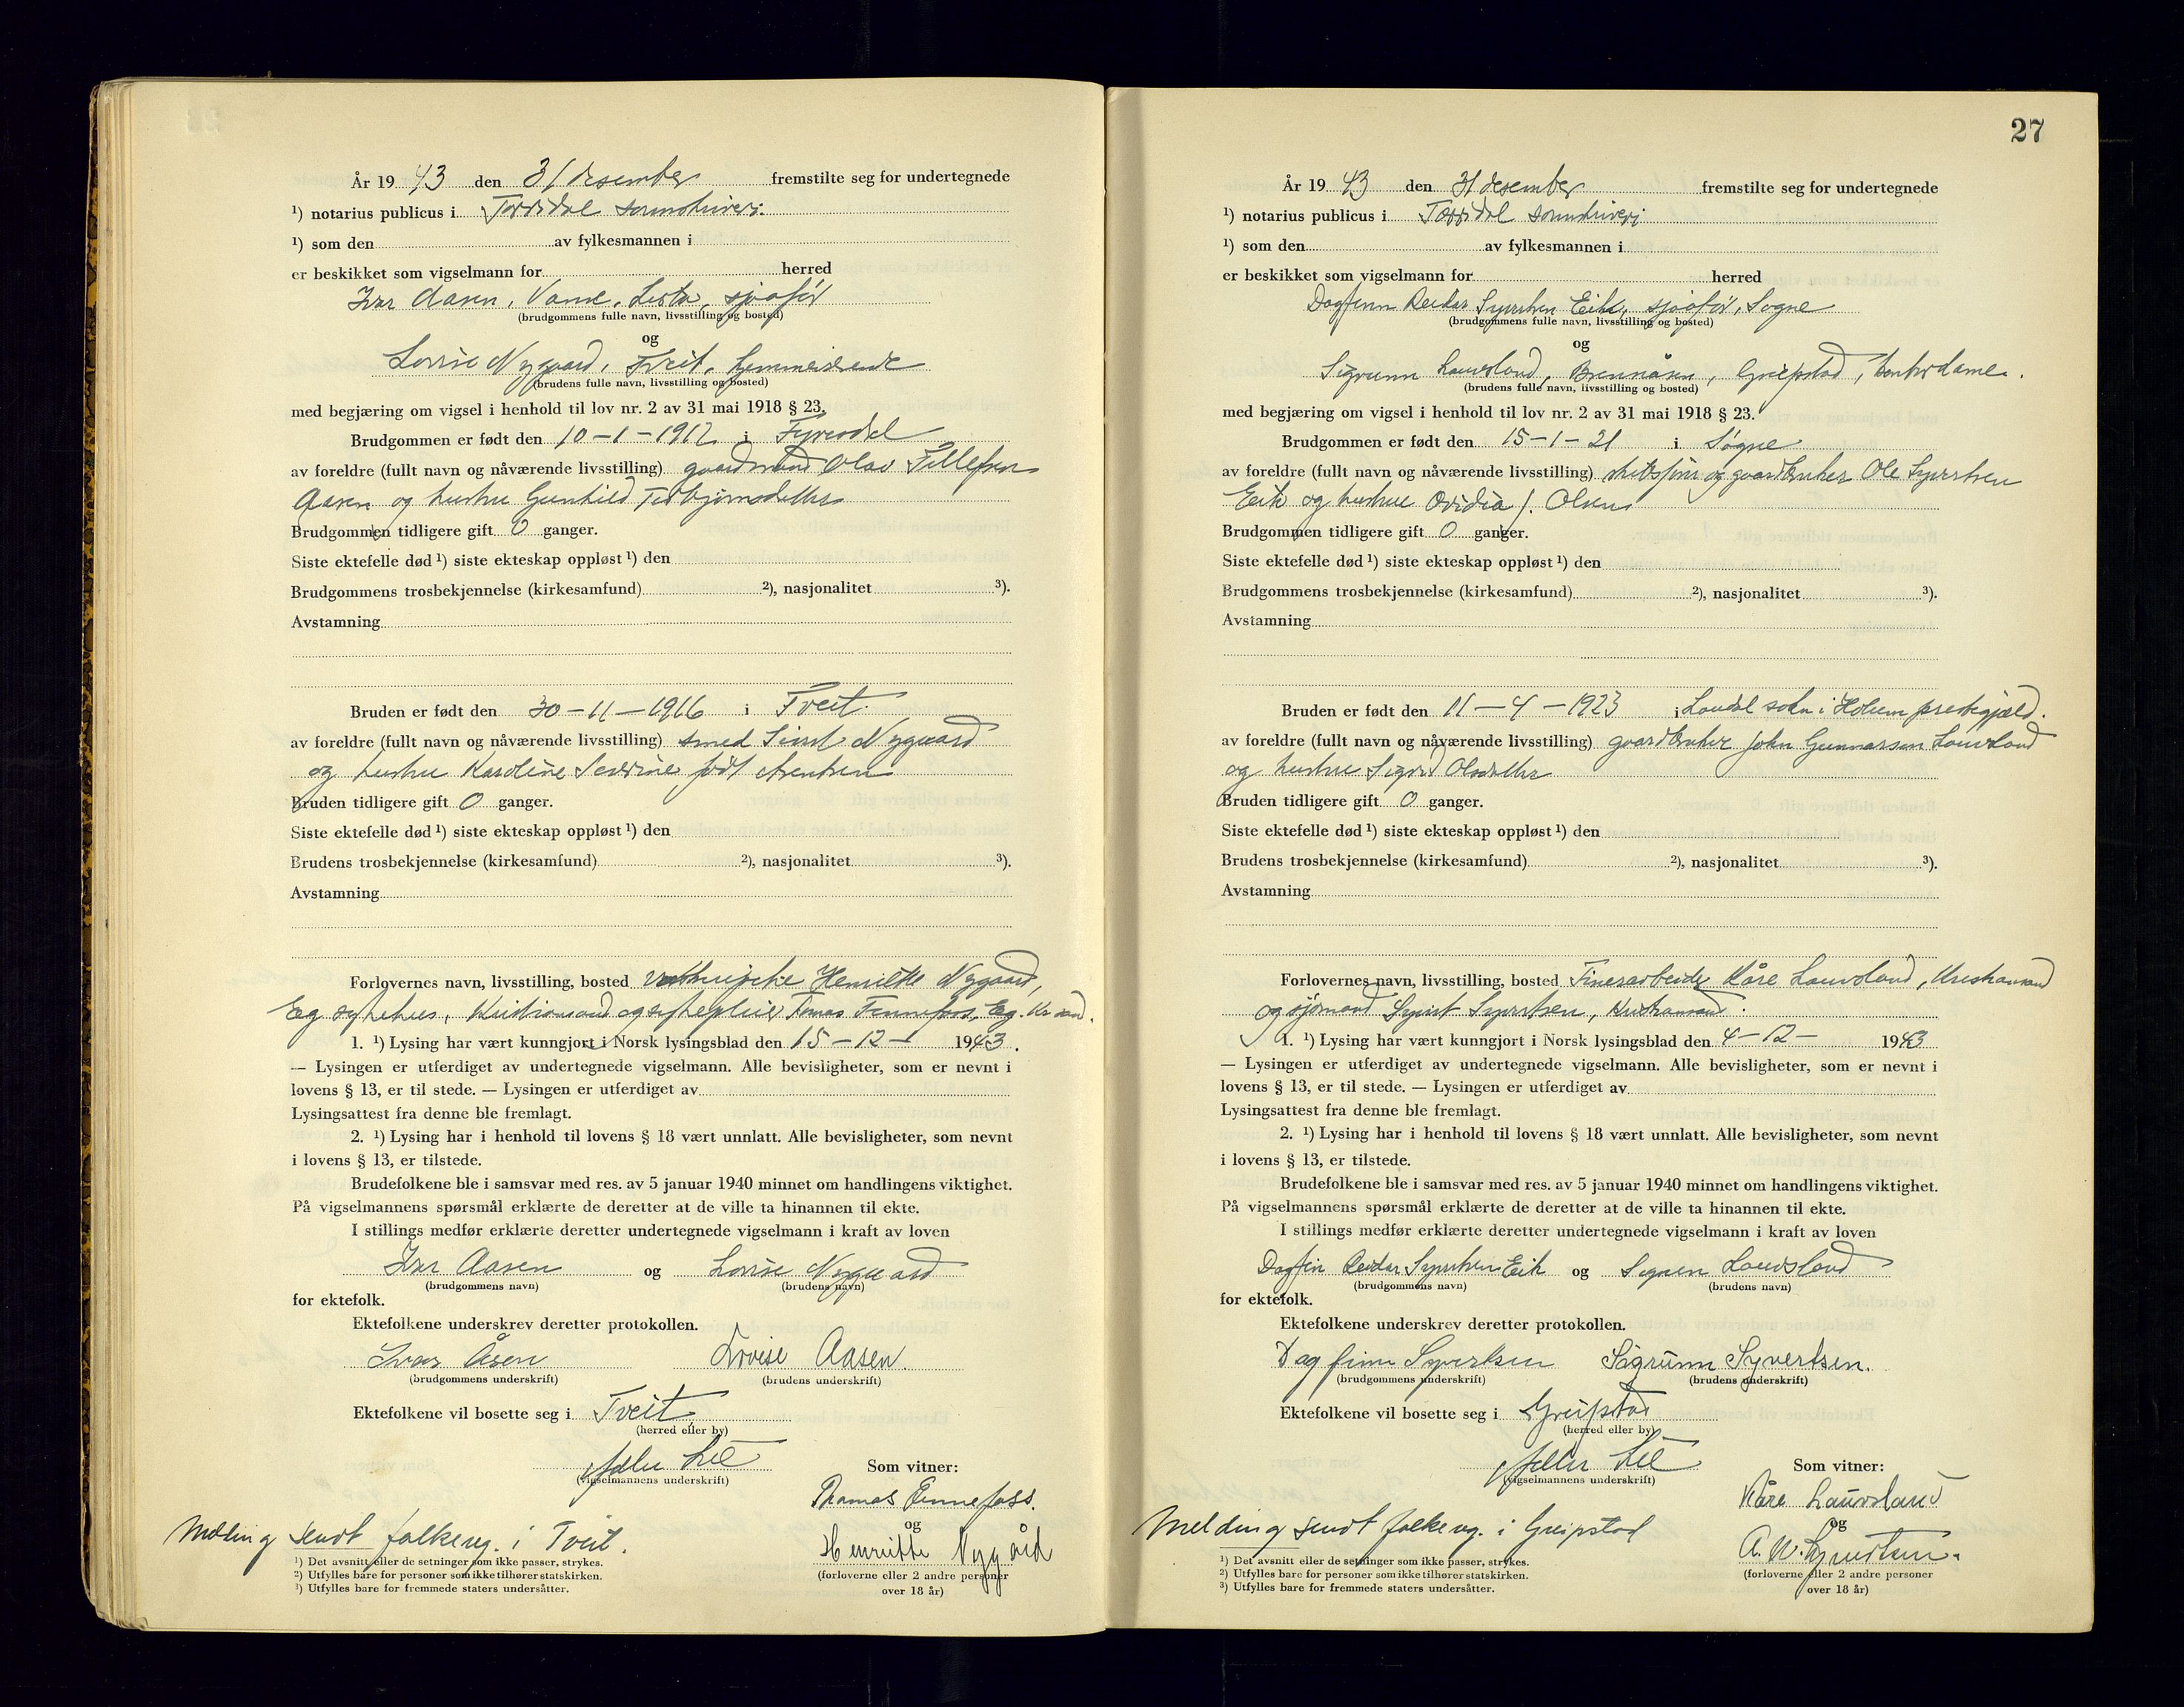 År 19 43 den 31 desember fremstilte seg for undertegnede
¹) notarius publicus i Torridal sorenskriveri.
¹) som den av fylkesmannen i
er beskikket som vigselmann for herred
Ivar Aasen, Vanse, Lista, sjåfør
(brudgommens fulle navn, livsstilling og bosted)
og
Lovise Nygaard, Tveit, hjemmeværende
(brudens fulle navn, livsstilling og bosted)
med begjæring om vigsel i henhold til lov nr. 2 av 31 mai 1918 § 23.
Brudgommen er født den 10-1-1912 i Fyresdal
av foreldre (fullt navn og nåværende livsstilling) gaardmand Olav Tellefsen
Aasen og hustru Gunhild Torbjørnsdatter
Brudgommen tidligere gift 0 ganger.
Siste ektefelle død ¹) siste ekteskap oppløst ¹) den
Brudgommens trosbekjennelse (kirkesamfund) ²), nasjonalitet ³).
Avstamning
Bruden er født den 30-11-1916 i Tveit.
av foreldre (fullt navn og nåværende livsstilling) smed Nygaard
og hustru Karoline Severine født Arentsen
Bruden tidligere gift 0 ganger.
Siste ektefelle død ¹) siste ekteskap oppløst ¹) den
Brudens trosbekjennelse (kirkesamfund) ²), nasjonalitet ³).
Avstamning
Forlovernes navn, livsstilling, bosted Henriette Nygaard,
Eg sykehus, Kristiansand og sykepleier Tomas Fennefoss, Eg, Kr.sand.
1. ¹) Lysing har vært kunngjort i Norsk lysingsblad den 15-12- 1943.
— Lysingen er utferdiget av undertegnede vigselmann. Alle bevisligheter, som er nevnt i
lovens § 13, er til stede. — Lysingen er utferdiget av
Lysingsattest fra denne ble fremlagt.
2. ¹) Lysing har i henhold til lovens § 18 vært unnlatt. Alle bevisligheter, som nevnt
i lovens § 13, er tilstede.
Brudefolkene ble i samsvar med res. av 5 januar 1940 minnet om handlingens viktighet.
På vigselmannens spørsmål erklærte de deretter at de ville ta hinannen til ekte.
I stillings medfør erklærte deretter undertegnede vigselmann i kraft av loven
Ivar Aasen og Lovise Nygaard
(brudgommens navn) (brudens navn)
for ektefolk.
Ektefolkene underskrev deretter protokollen.
Ivar Åsen Lovise Aasen.
(brudgommens underskrift) (brudens underskrift)
Ektefolkene vil bosette seg i Tveit
(herred eller by)
(vigselmannens underskrift)
Som vitner:
Thomas Fennefoss.
og
Henriette Nygård
(forloverne eller 2 andre personer
over 18 år)
Melding sendt folkereg. i Tveit.
¹) Det avsnitt eller de setninger som ikke passer, strykes.
²) Utfylles bare for personer som ikke tilhører statskirken.
³) Utfylles bare for fremmede staters undersåtter.
27
År 19 43 den 31 desember fremstilte seg for undertegnede
¹) notarius publicus i Torridal sorenskriveri
¹) som den av fylkesmannen i
er beskikket som vigselmann for herred
Dagfinn Reidar Syvertsen Eik, sjåfør, Søgne
(brudgommens fulle navn, livsstilling og bosted)
og
Sigrunn Lauvsland, Brennåsen, Greipstad, kontordame.
(brudens fulle navn, livsstilling og bosted)
med begjæring om vigsel i henhold til lov nr. 2 av 31 mai 1918 § 23.
Brudgommen er født den 15-1-21 i Søgne
av foreldre (fullt navn og nåværende livsstilling) og gaardbruker Ole Syvertsen
Eik og hustru Ovidia f. Olsen
Brudgommen tidligere gift 0 ganger.
Siste ektefelle død ¹) siste ekteskap oppløst ¹) den
Brudgommens trosbekjennelse (kirkesamfund) ²), nasjonalitet ³).
Avstamning
Bruden er født den 11-4-1923 i Laudal sokn i Holum prestegjeld.
av foreldre (fullt navn og nåværende livsstilling) gaardbruker John Gunnarsen Lauvsland
og hustru Sigrid Olsdatter
Bruden tidligere gift 0 ganger.
Siste ektefelle død ¹) siste ekteskap oppløst ¹) den
Brudens trosbekjennelse (kirkesamfund) ²), nasjonalitet ³).
Avstamning
Forlovernes navn, livsstilling, bosted Finerarbeider Kåre Lauvsland, Kristiansand
og sjømand Syvert Syvertsen, Kristiansand.
1. ¹) Lysing har vært kunngjort i Norsk lysingsblad den 4-12- 1943
— Lysingen er utferdiget av undertegnede vigselmann. Alle bevisligheter, som er nevnt i
lovens § 13, er til stede. — Lysingen er utferdiget av
Lysingsattest fra denne ble fremlagt.
2. ¹) Lysing har i henhold til lovens § 18 vært unnlatt. Alle bevisligheter, som nevnt
i lovens § 13, er tilstede.
Brudefolkene ble i samsvar med res. av 5 januar 1940 minnet om handlingens viktighet.
På vigselmannens spørsmål erklærte de deretter at de ville ta hinannen til ekte.
I stillings medfør erklærte deretter undertegnede vigselmann i kraft av loven
Dagfin Reidar Syvertsen Eik og Sigrun Lauvsland
(brudgommens navn) (brudens navn)
for ektefolk.
Ektefolkene underskrev deretter protokollen.
Dagfinn Syvertsen Sigrunn Syvertsen.
(brudgommens underskrift) (brudens underskrift)
Ektefolkene vil bosette seg i Greipstad
(herred eller by)
(vigselmannens underskrift)
Som vitner:
Kåre Lauvsland
og
Syvertsen.
(forloverne eller 2 andre personer
over 18 år)
Melding sendt folkereg. i Greipstad
¹) Det avsnitt eller de setninger som ikke passer, strykes.
²) Utfylles bare for personer som ikke tilhører statskirken.
³) Utfylles bare for fremmede staters undersåtter.